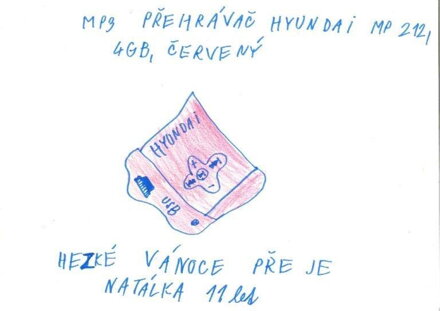 MP3 PŘEHRÁVAČ HYUNDAI MP 212,
4GB, ČERVENÝ
HYUNDAI
+
-
USB
HEZKÉ VÁNOCE PŘEJE
NATÁLKA 11 let